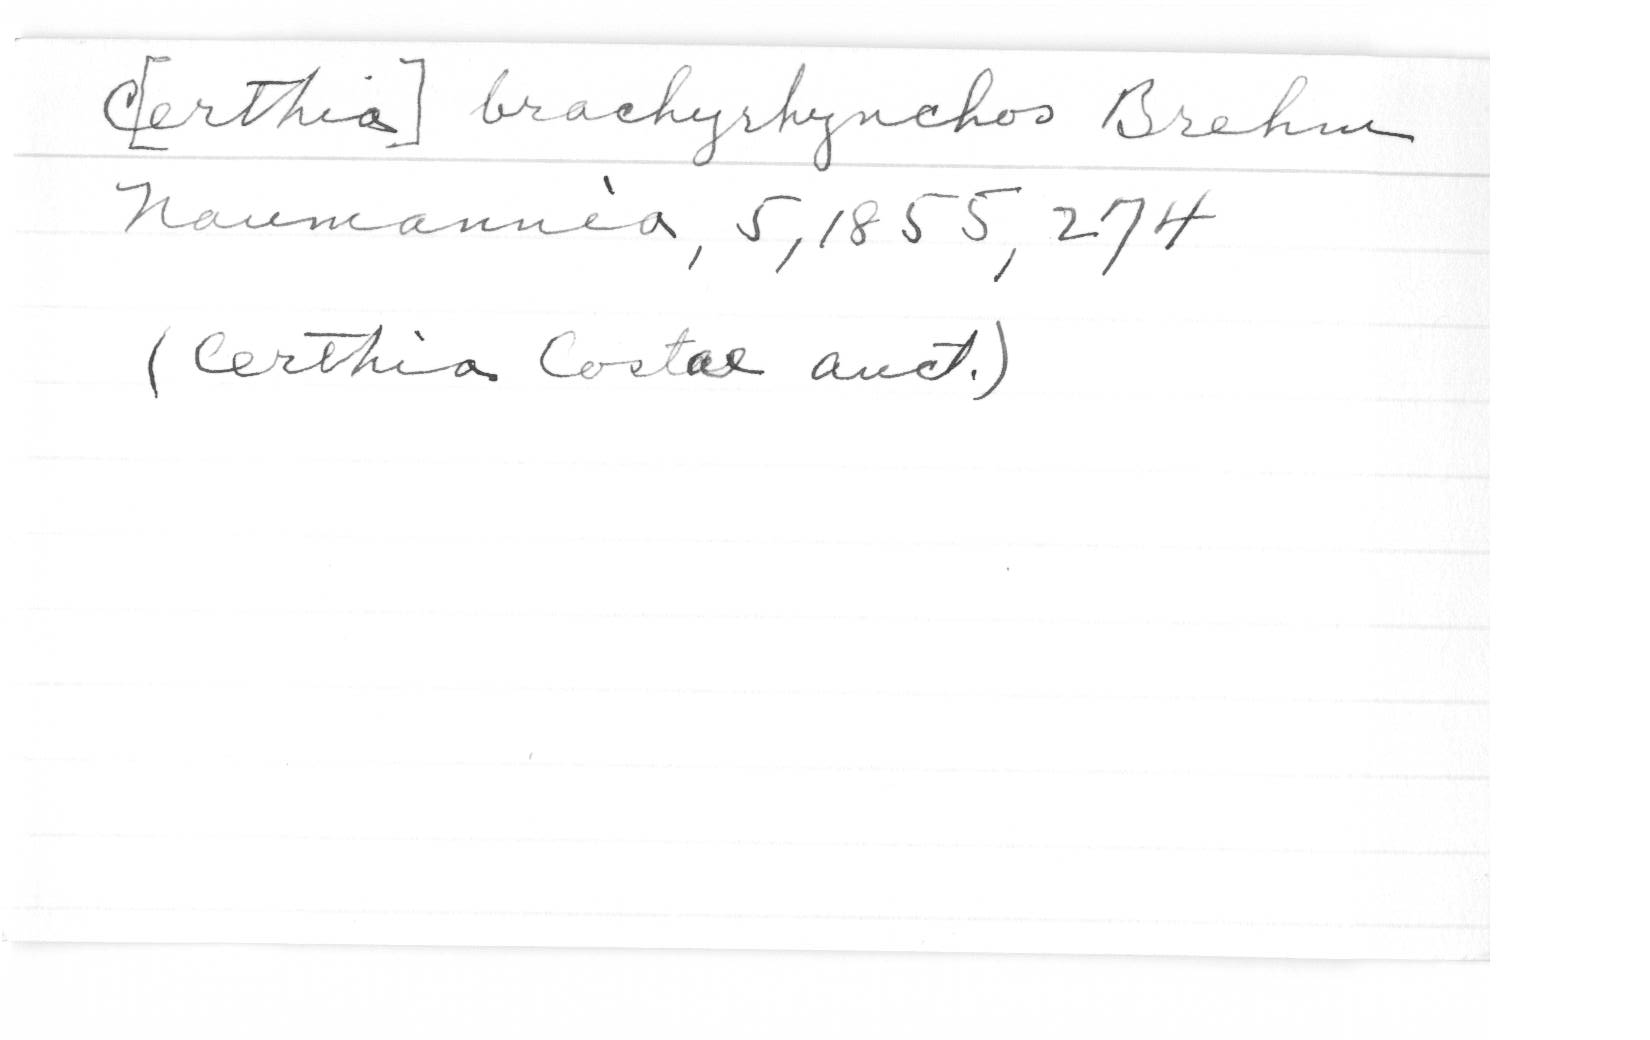 C[erthia] brachyrhynchos Brehm
Naumannia, 5, 1855, 274
(Certhia Costae auct.)